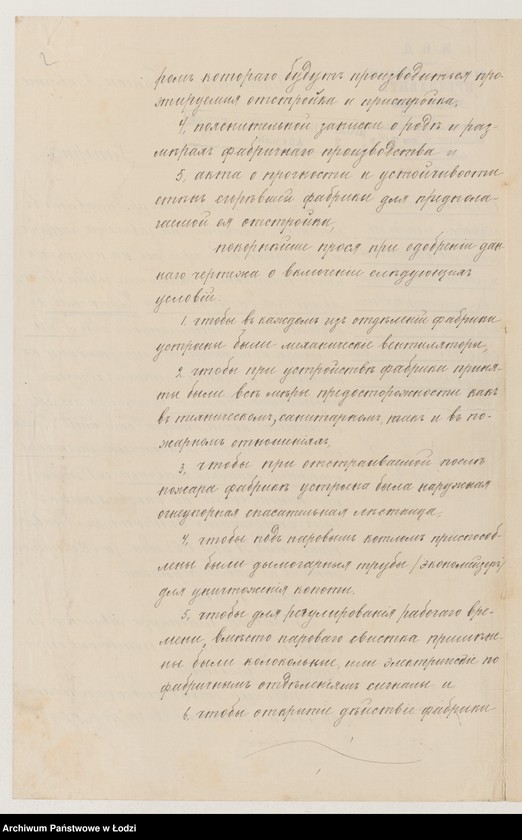 2
ромъ котораго будутъ производиться про-
эктируемыя отстройка и пристройка,
4, пояснительной записки о родѣ и раз-
мѣрахъ фабричнаго производства и
5, акта о прочности и устойчивости
стѣнъ сгорѣвшей фабрики для предпола-
гаемой ея отстройки,
покорнѣйше прося при одобреніи дан-
наго чертежа о включеніи слѣдующихъ
условій:
1, чтобы въ каждомъ изъ отдѣленій фабрики
устроены были механическіе вентиляторы,
2, чтобы при устройствѣ фабрики приня-
ты были всѣ мѣры предосторожности какъ
въ техническомъ, санитарномъ, такъ и въ по-
жарномъ отношеніяхъ,
3, чтобы при отстраиваемой послѣ
пожара фабрикѣ устроена была наружная
огнеупорная спасательная лѣстница,
4, чтобы подъ паровымъ котломъ приспособ-
лены были дымогарныя трубы /экономайзеръ/
для уничтоженія копоти.
5, чтобы для регулированія рабочаго вре-
мени, вмѣсто пароваго свистка примѣне-
ны были колокольные, или электрическіе по
фабричнымъ отдѣленіямъ сигналы и
6, чтобы открытіе дѣйствія фабрики
Archiwum Państwowe w Łodzi